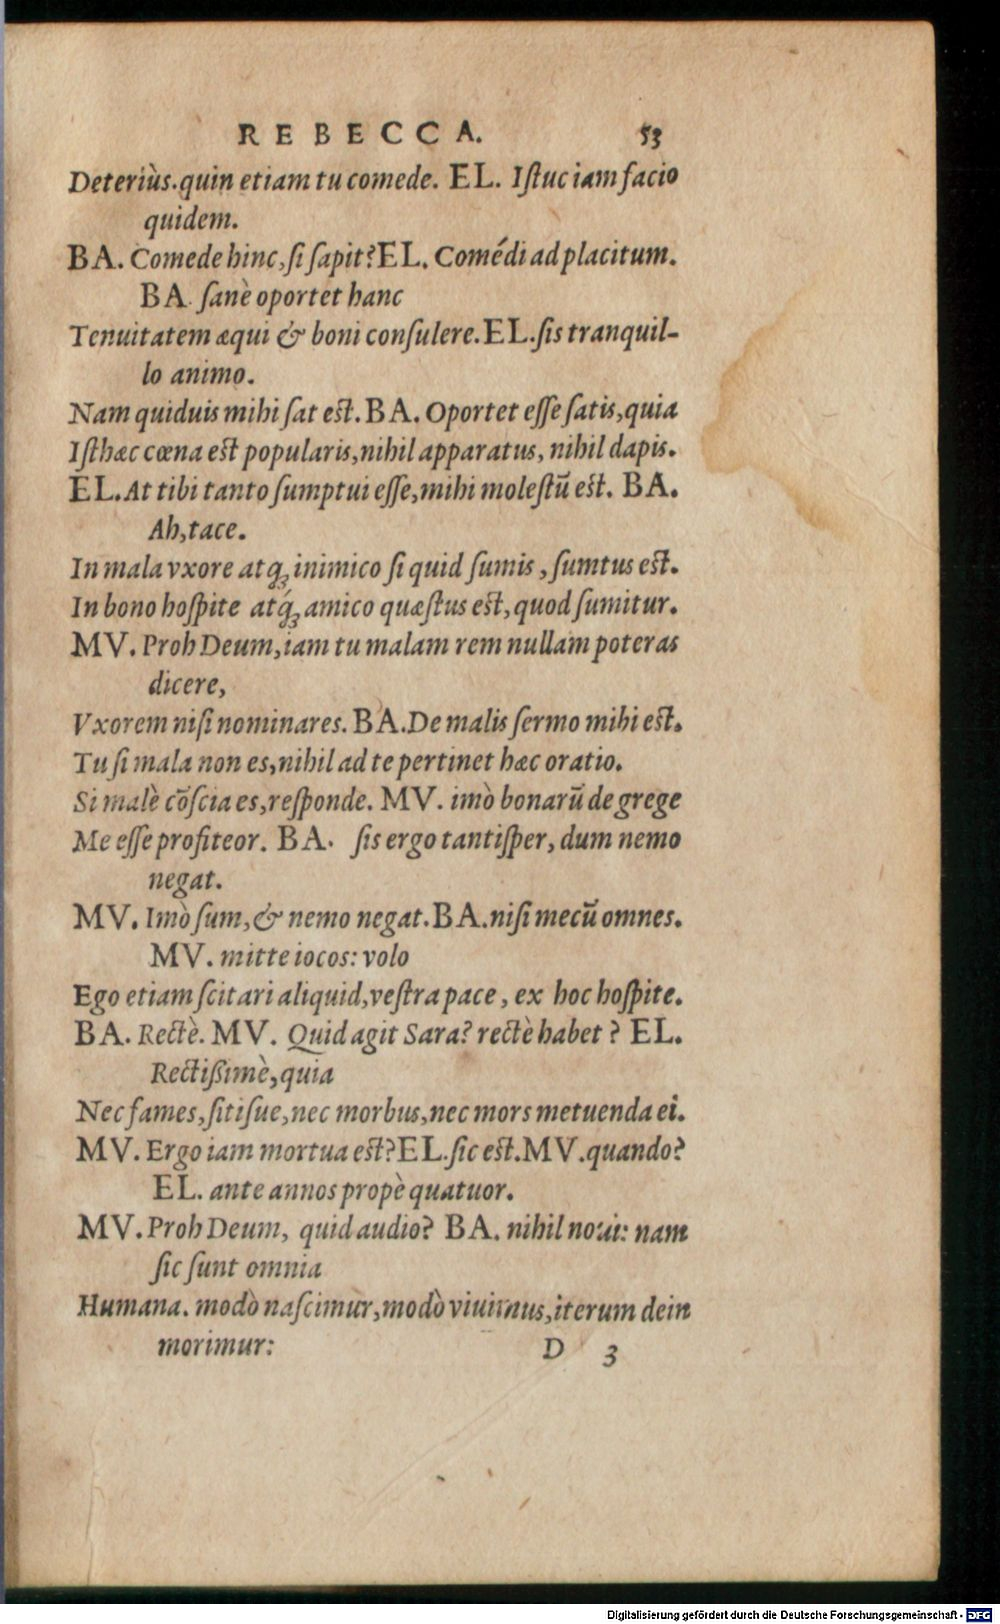 REBECCA. 53
Deteriùs.quin etiam tu comede. EL. Iſtuc iam facio
quidem.
BA. Comede hinc,ſi ſapit?EL. Comédi ad placitum.
BA. ſanè oportet hanc
Tenuitatem æqui & boni conſulere.EL.ſis tranquil-
lo animo.
Nam quiduis mihi ſat eſt.BA. Oportet eſſe ſatis,quia
Iſthæc cœna eſt popularis,nihil apparatus, nihil dapis.
EL.At tibi tanto ſumptui eſſe,mihi moleſtũ eſt. BA.
Ah,tace.
In mala vxore atq; inimico ſi quid ſumis, ſumtus eſt.
In bono hoſpite atq́; amico quæſtus eſt,quod ſumitur.
MV. Proh Deum,iam tu malam rem nullam poteras
dicere,
Vxorem niſi nominares. BA.De malis ſermo mihi eſt.
Tu ſi mala non es,nihil ad te pertinet hæc oratio.
Si malè cõſcia es,reſponde. MV. imò bonarũ de grege
Me eſſe profiteor. BA. ſis ergo tantiſper, dum nemo
negat.
MV. Imò ſum,& nemo negat.BA.niſi mecũ omnes.
MV. mitte iocos: volo
Ego etiam ſcitari aliquid,veſtra pace, ex hoc hoſpite.
BA. Rectè. MV. Quid agit Sara? rectè habet? EL.
Rectißimè,quia
Nec fames,ſitiſue,nec morbus,nec mors metuenda ei.
MV. Ergo iam mortua eſt?EL.ſic eſt.MV.quando?
EL. ante annos propè quatuor.
MV. Proh Deum, quid audio? BA. nihil noui: nam
ſic ſunt omnia
Humana. modò naſcimur,modò viuimus,iterum dein
morimur: D 3
Digitalisierung gefördert durch die Deutsche Forschungsgemeinschaft - DFG